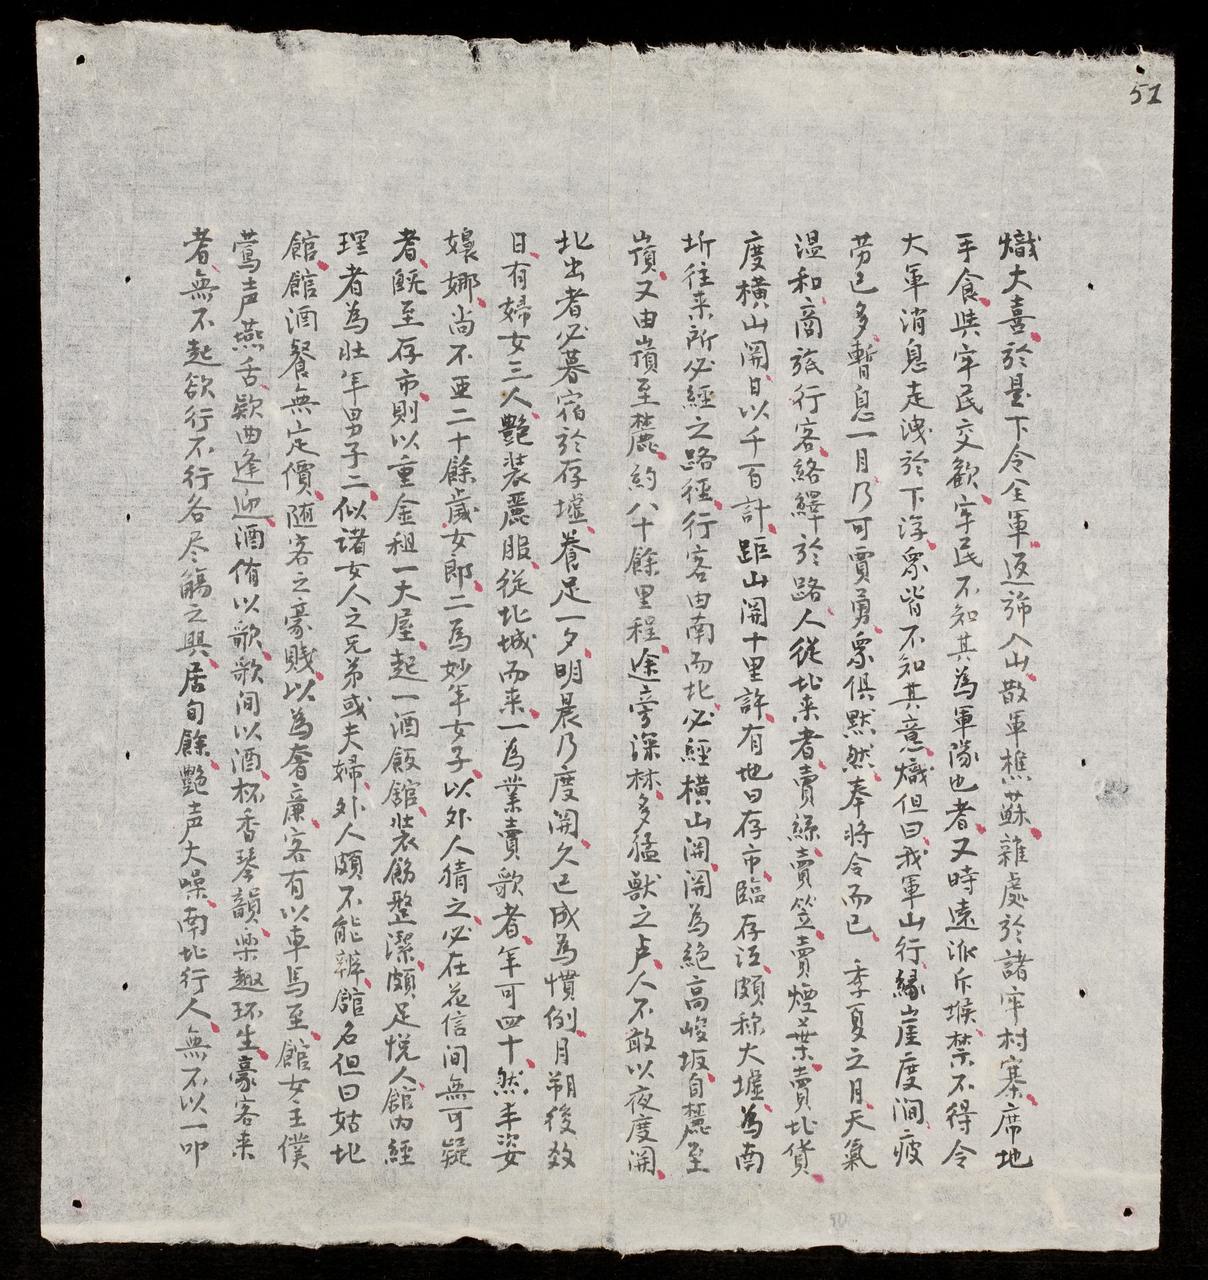 51
熾大喜於是下令全軍返斾入山散軍樵蘇雜處於諸牢村寨席地
手食與牢民交歡牢民不知其為軍隊也者又時遠派斥堠禁不得令
大軍消息走洩於下浮衆皆不知其意熾但曰我軍山行緣崖度澗疲
劳已多暫息一月乃可賈勇衆俱默然奉將令而已 季夏之月天氣
温和商旅行客絡繹於路人從北来者賣絲賣笠賣煙葉賣北貨
度橫山関日以千百計距山関十里許有地曰存市臨存江頗称大墟為南
圻往来所必經之路徑行客由南而北必經橫山関関為絕高峻坂自麓至
嶺又由嶺至麓約八十餘里程途旁深林多猛獸之卢人不敢以夜度関
北出者必暮宿於存墟養足一夕明晨乃度関久已成為慣例月朔後数
日有婦女三人艶裝麗服從北城而来一為業賣歌者年可四十然丰姿
嬝娜尚不亚二十餘歲女郎二為妙年女子以外人猜之必在花信間無可疑
者既至存市則以重金租一大屋起一酒飯館裝飭整潔頗足悅人館内經
理者為壯年男子二似諸女人之兄弟或夫婦外人頗不能辨館名但曰姑北
館館酒餐無定價随客之豪賤以為奢廉客有以車馬至館女主僕
鶯声燕舌欵曲逢迎酒侑以歌歌间以酒杯香琴韻樂趣环生豪客来
者無不起欲行不行各尽觴之興居旬餘艶声大噪南北行人無不以一叩